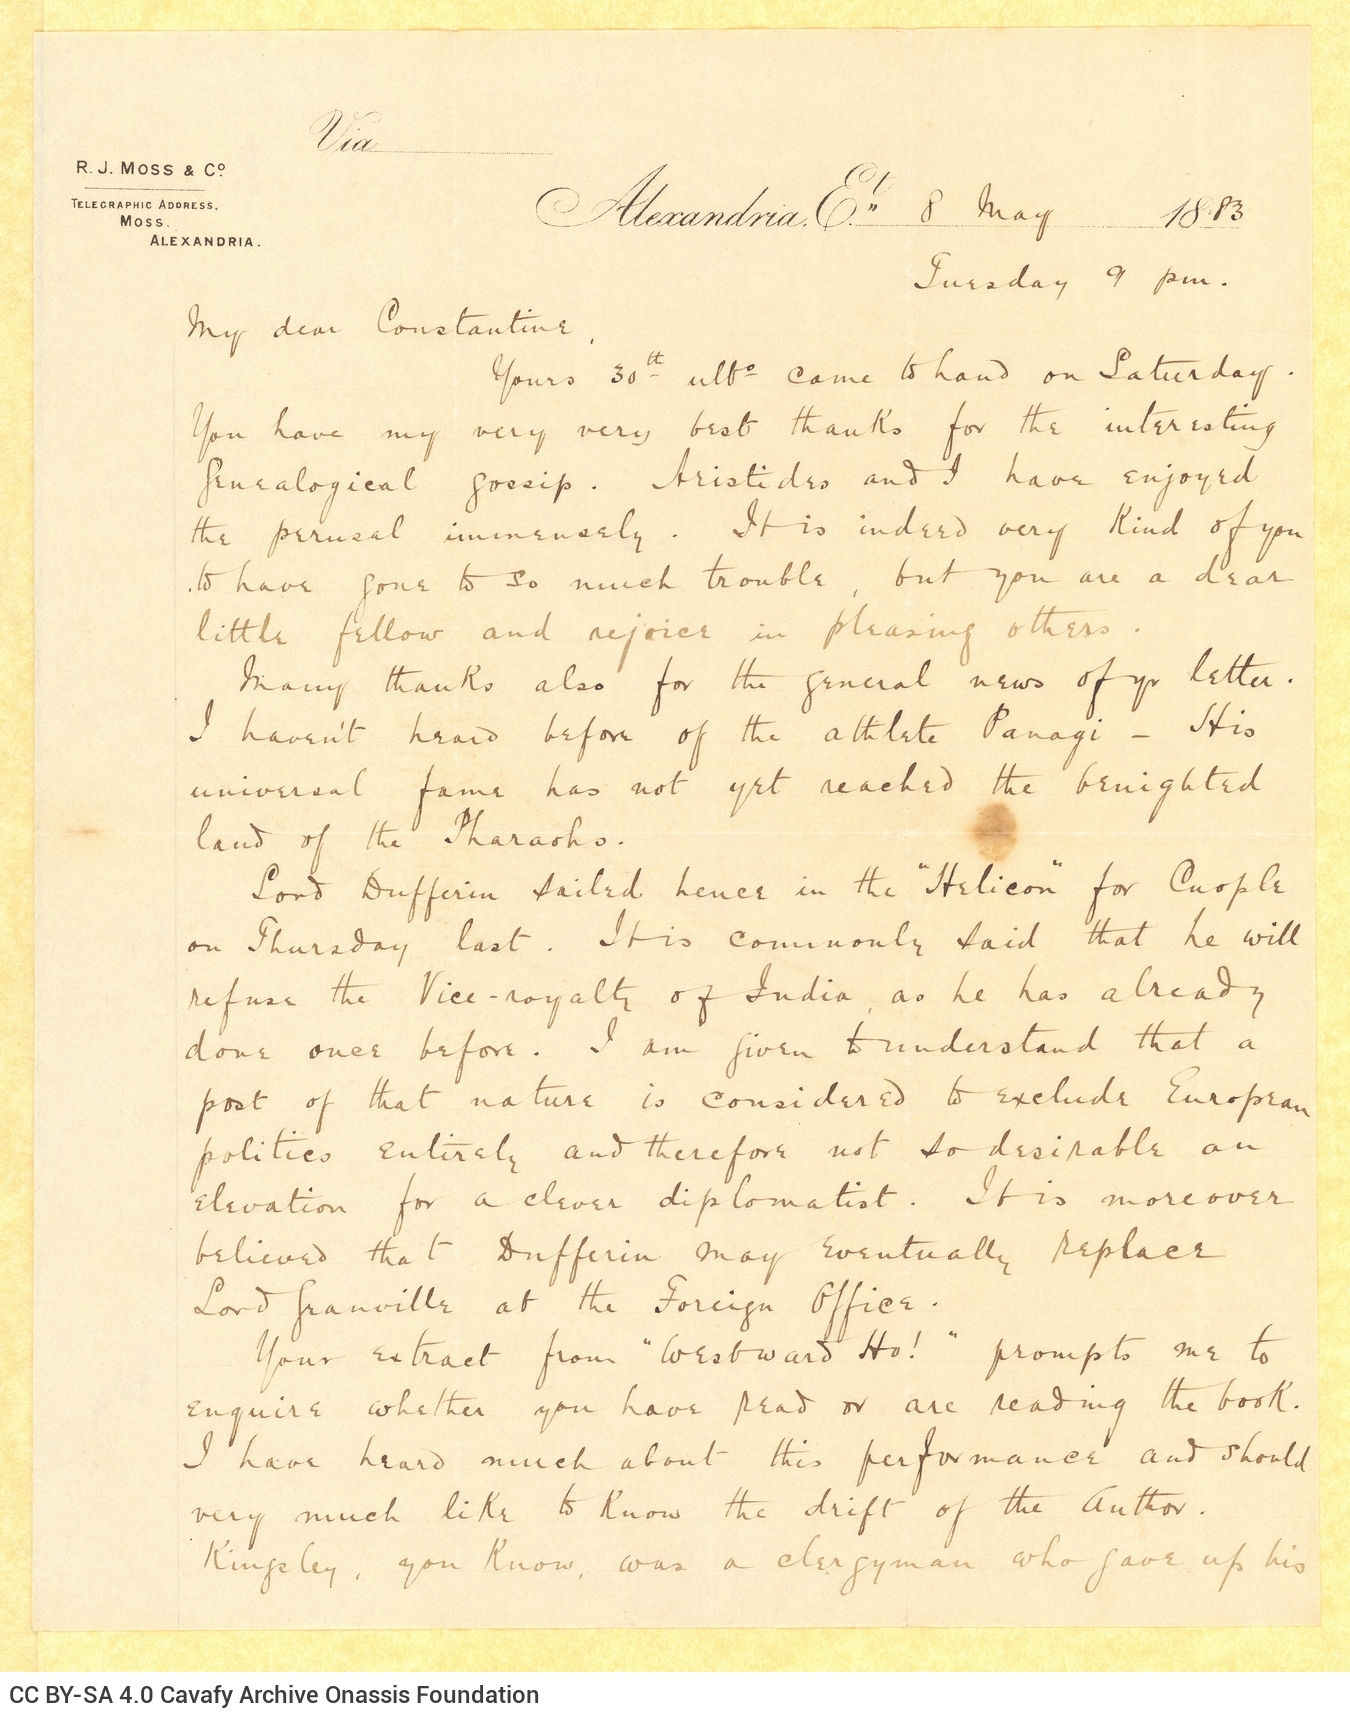 Via
R. J. MOSS & Co.
TELEGRAPHIC ADDRESS,
MOSS.
ALEXANDRIA.
Alexandria, Et. 8 May 1883
Tuesday 9 pm.
My dear Constantine,
Yours 30th ulto came to hand on Saturday.
You have my very very best thanks for the interesting
genealogical gossip. Aristides and I have enjoyed
the perusal immensely. It is indeed very kind of you
to have gone to so much trouble, but you are a dear
little fellow and rejoice in pleasing others.
Many thanks also for the general news of yr letter.
I haven't heard before of the athlete Panagi – His
universal fame has not yet reached the benighted
land of the Pharaohs.
Lord Dufferin sailed hence in the "Helicon" for Cnople
on Thursday last. It is commonly said that he will
refuse the Vice-royalty of India, as he has already
done once before. I am given to understand that a
post of that nature is considered to exclude European
politics entirely and therefore not so desirable an
elevation for a clever diplomatist. It is moreover
believed that Dufferin may eventually replace
Lord Granville at the Foreign Office.
Your extract from "Westward Ho!" prompts me to
enquire whether you have read or are reading the book.
I have heard much about this performance and should
very much like to know the drift of the Author.
Kingsley, you know, was a clergyman who gave up his
CC BY-SA 4.0 Cavafy Archive Onassis Foundation